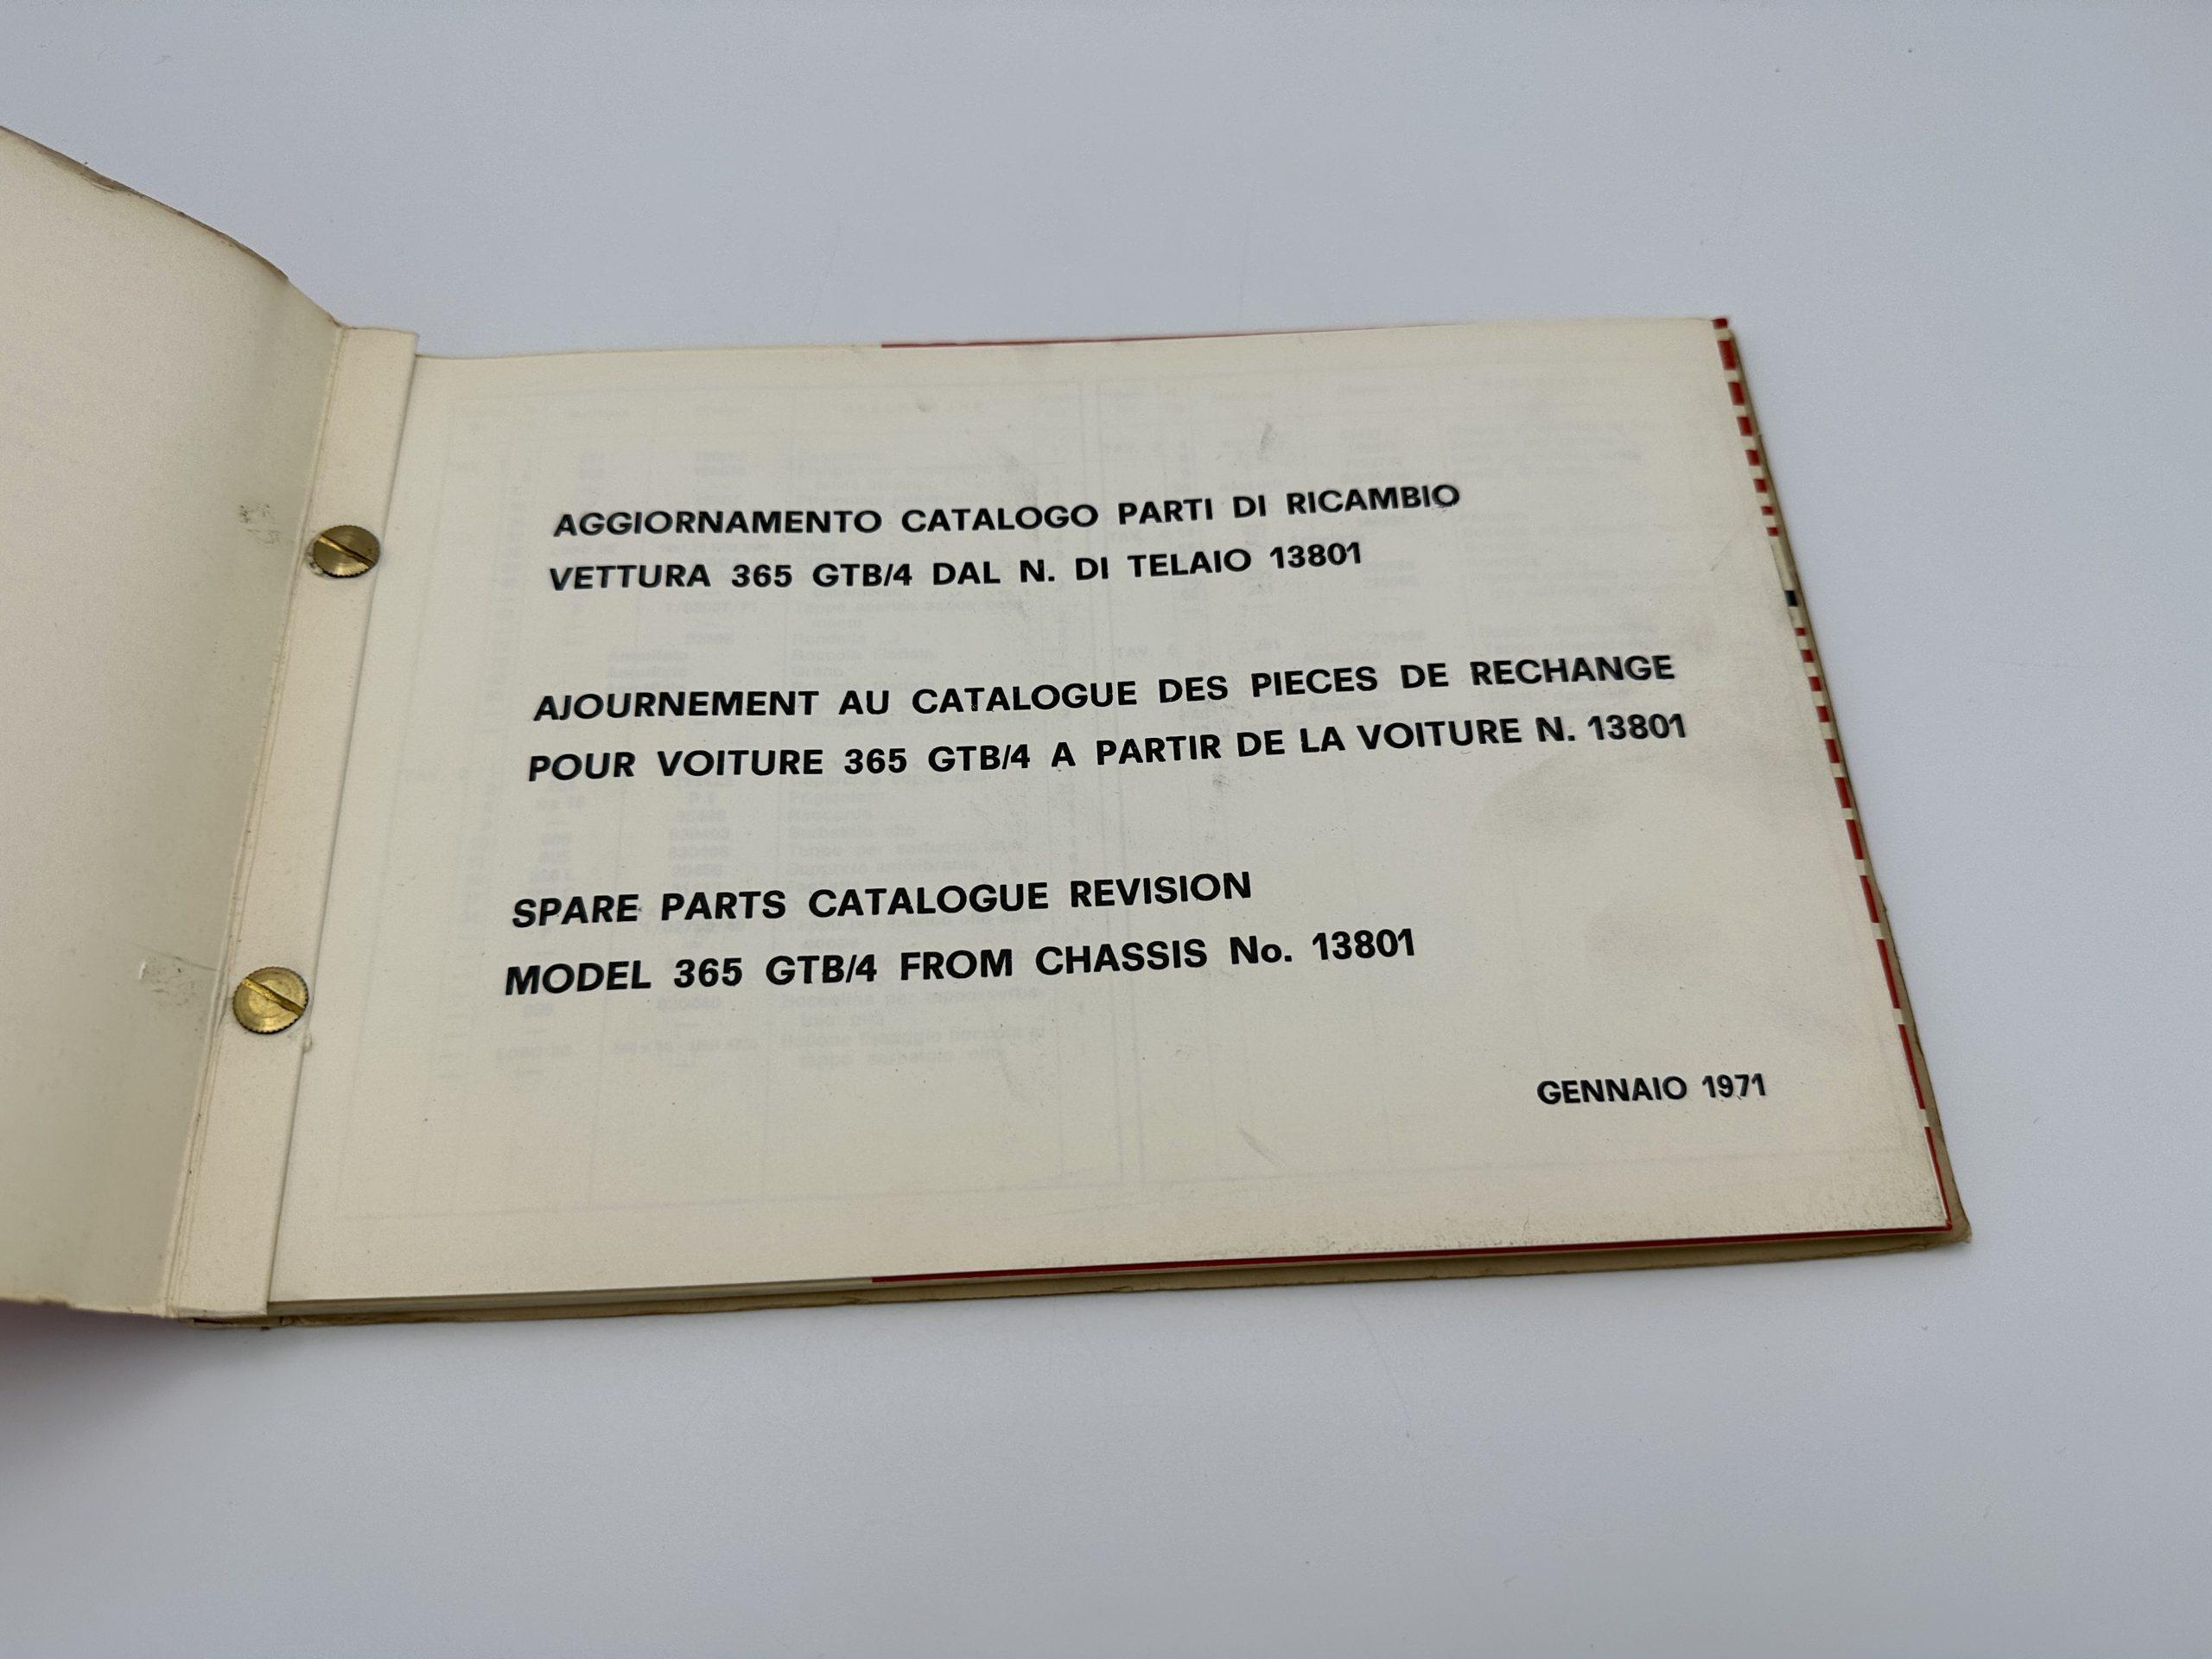 AGGIORNAMENTO CATALOGO PARTI DI RICAMBIO
VETTURA 365 GTB/4 DAL N. DI TELAIO 13801
AJOURNEMENT AU CATALOGUE DES PIECES DE RECHANGE
POUR VOITURE 365 GTB/4 A PARTIR DE LA VOITURE N. 13801
SPARE PARTS CATALOGUE REVISION
MODEL 365 GTB/4 FROM CHASSIS No. 13801
GENNAIO 1971